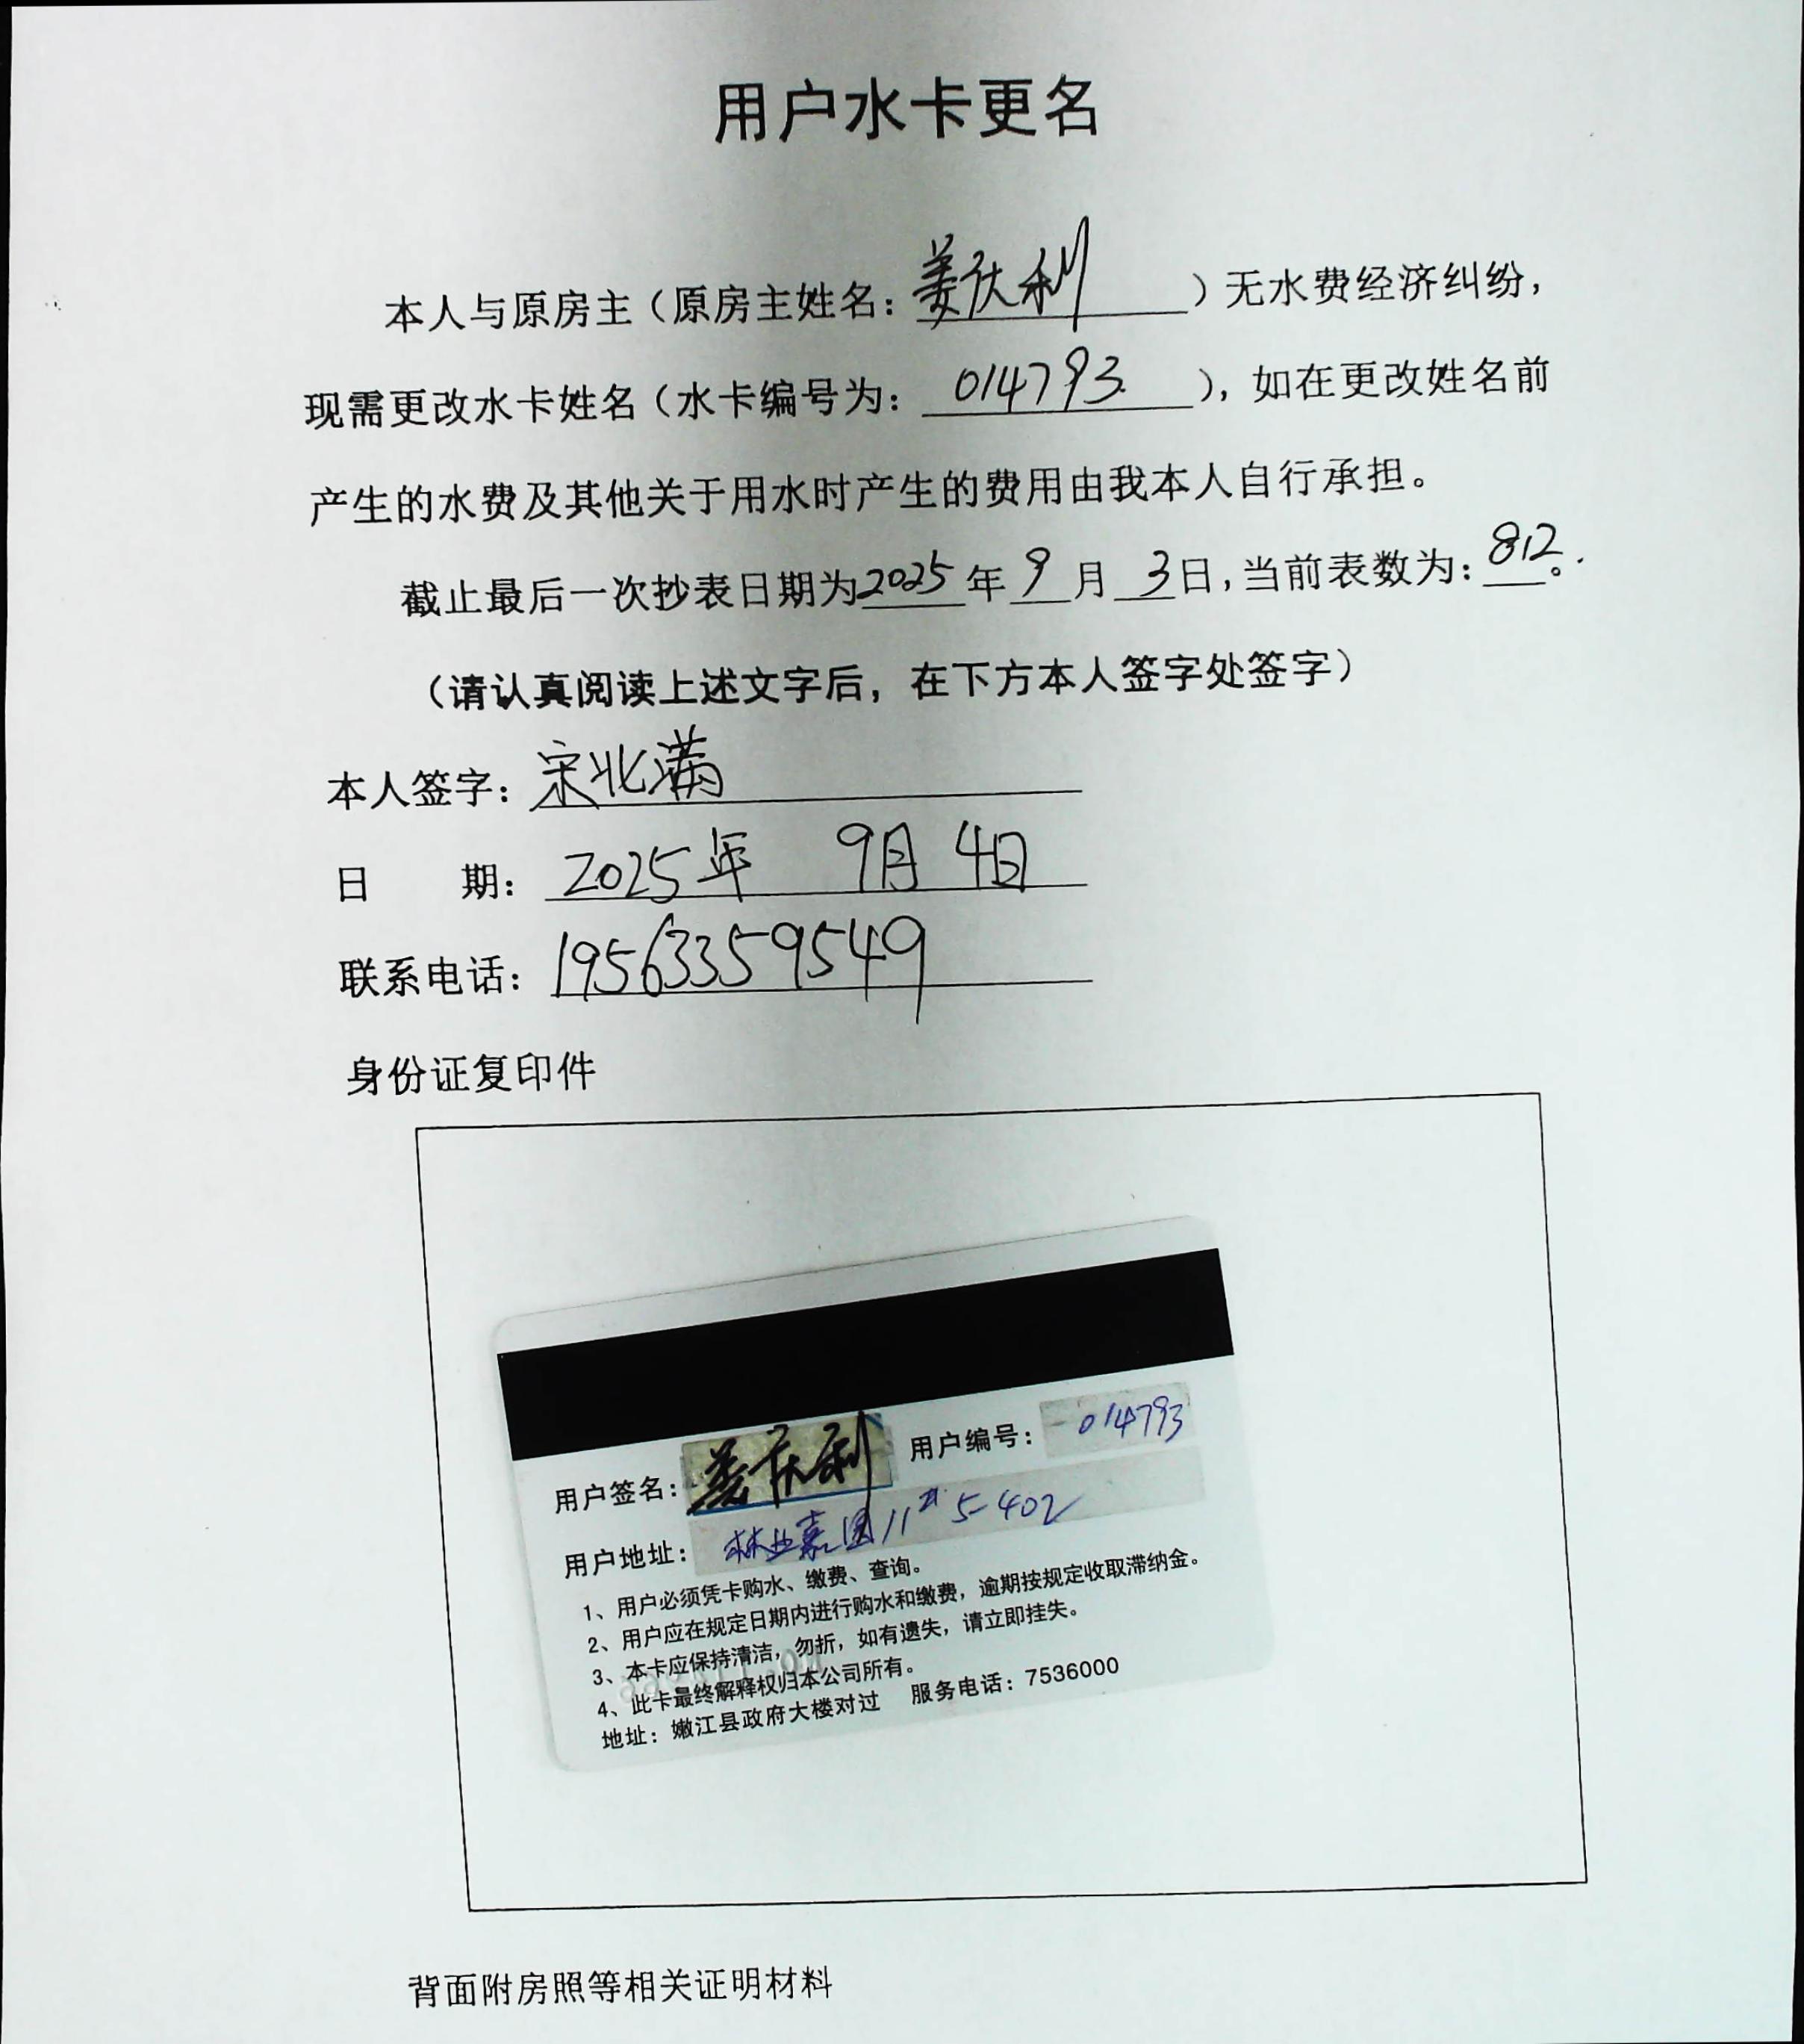 用户水卡更名
本人与原房主（原房主姓名：姜庆利）无水费经济纠纷，
现需更改水卡姓名（水卡编号为：014793），如在更改姓名前
产生的水费及其他关于用水时产生的费用由我本人自行承担。
截止最后一次抄表日期为2025年9月3日，当前表数为：812。
（请认真阅读上述文字后，在下方本人签字处签字）
本人签字：宋北满
日 期：2025年 9月4日
联系电话：19563359549
身份证复印件
用户签名：姜庆利 用户编号：014793
用户地址：林业嘉园11# 5-402
1、用户必须凭卡购水、缴费、查询。
2、用户应在规定日期内进行购水和缴费，逾期按规定收取滞纳金。
3、本卡应保持清洁，勿折，如有遗失，请立即挂失。
4、此卡最终解释权归本公司所有。
地址：嫩江县政府大楼对过 服务电话：7536000
背面附房照等相关证明材料